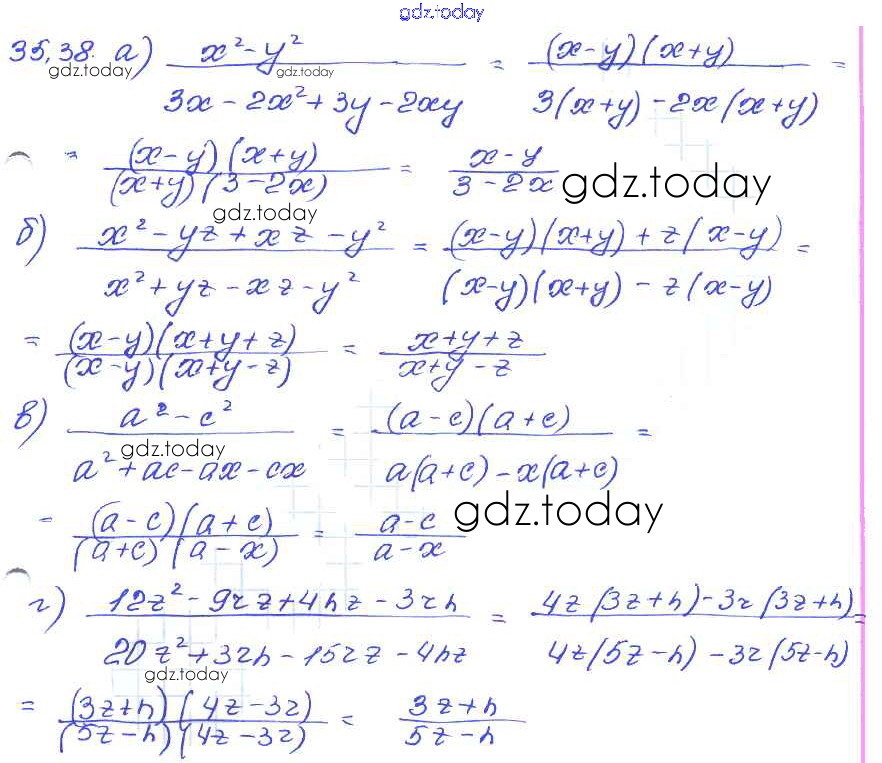 gdz.today
35.38. а) (x² - y²) / (3x - 2x² + 3y - 2xy) = ((x-y)(x+y)) / (3(x+y) - 2x(x+y)) =
gdz.today gdz.today
= ((x-y)(x+y)) / ((x+y)(3-2x)) = (x-y) / (3-2x) gdz.today
gdz.today
б) (x² - yz + xz - y²) / (x² + yz - xz - y²) = ((x-y)(x+y) + z(x-y)) / ((x-y)(x+y) - z(x-y)) =
= ((x-y)(x+y+z)) / ((x-y)(x+y-z)) = (x+y+z) / (x+y-z)
в) (a² - c²) / (a² + ac - ax - cx) = ((a-c)(a+c)) / (a(a+c) - x(a+c)) =
gdz.today
= ((a-c)(a+c)) / ((a+c)(a-x)) = (a-c) / (a-x) gdz.today
г) (12z² - 9rz + 4nz - 3rn) / (20z² + 3rn - 15rz - 4nz) = (4z(3z+n) - 3r(3z+n)) / (4z(5z-n) - 3r(5z-n)) =
gdz.today
= ((3z+n)(4z-3r)) / ((5z-n)(4z-3r)) = (3z+n) / (5z-n)